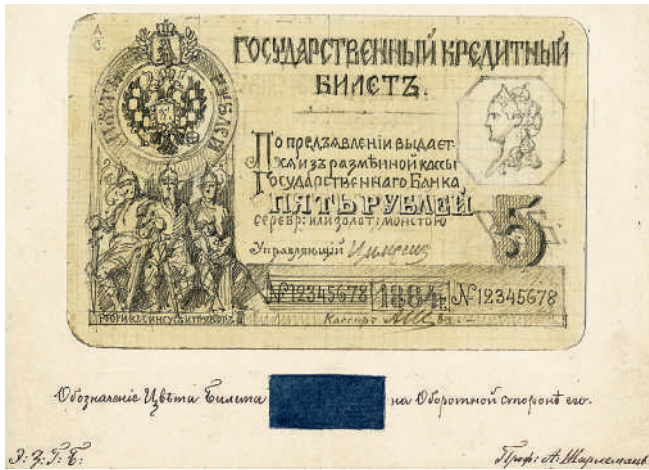 А
ГОСУДАРСТВЕННЫЙ КРЕДИТНЫЙ
БИЛЕТЪ.
ПЯТЬ РУБЛЕЙ
По предъявленіи выдает-
ся изъ размѣнной кассы
Государственнаго Банка
ПЯТЬ РУБЛЕЙ
серебр: или золот: монетою
5
Управляющій Цимсенъ
№12345678 1884г №12345678
РЮРИКЪ СИНЕУСЪ И ТРУВОРЪ
Кассиръ
Обозначеніе Цвѣта Билета на Оборотной сторонѣ его.
Э: З: Г: Б: Проф: А: Шарлемань